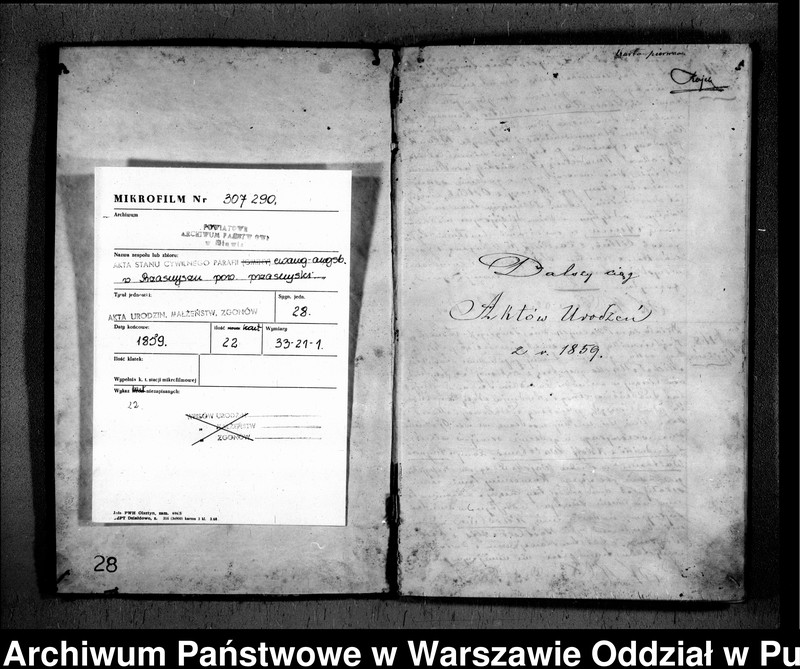 MIKROFILM Nr 307290.
Archiwum
POWIATOWE
ARCHIWUM PAŃSTWOWE
w Mławie
Nazwa zespołu lub zbioru:
AKTA STANU CYWILNEGO PARAFII ewang-augsb.
w Przasnyszu pow. przasnyski
Tytuł jednostki:
AKTA URODZIN, MAŁŻEŃSTW, ZGONÓW
Sygn. jedn.
28.
Daty końcowe:
1859.
Ilość kart
22
Wymiary
33-21-1.
Ilość klatek:
Wypełnia k. t. stacji mikrofilmowej
Wykaz niezapisanych:
22
AKTÓW URODZIN
" MAŁŻEŃSTW
" ZGONÓW
28
karta pierwsza
Dalszy ciąg
Aktów Urodzeń
z r. 1859.
Archiwum Państwowe w Warszawie Oddział w Pu